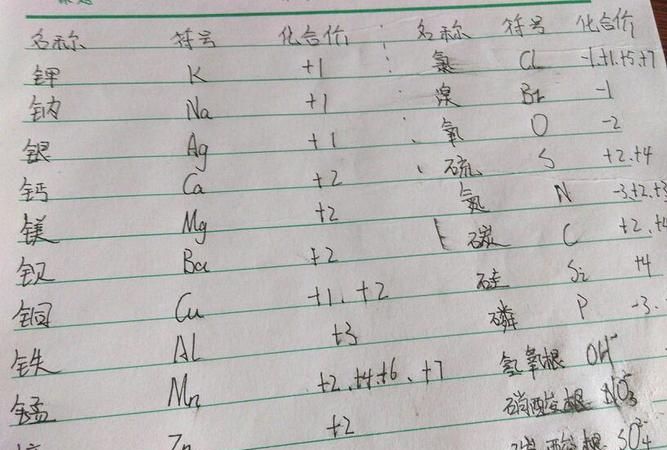 名称 符号 化合价 名称 符号 化合价
钾 K +1 氯 Cl -1.+1.+5.+7
钠 Na +1 溴 Br -1
银 Ag +1 氧 O -2
钙 Ca +2 硫 S +2.+4
镁 Mg +2 氮 N -3.+2.+3
钡 Ba +2 碳 C +2.+4
铜 Cu +1.+2 硅 Si +4
铁 Al +3 磷 P -3.
锰 Mn +2.+4.+6.+7 氢氧根 OH⁻
Zn +2 硝酸根 NO₃⁻
硫酸根 SO₄